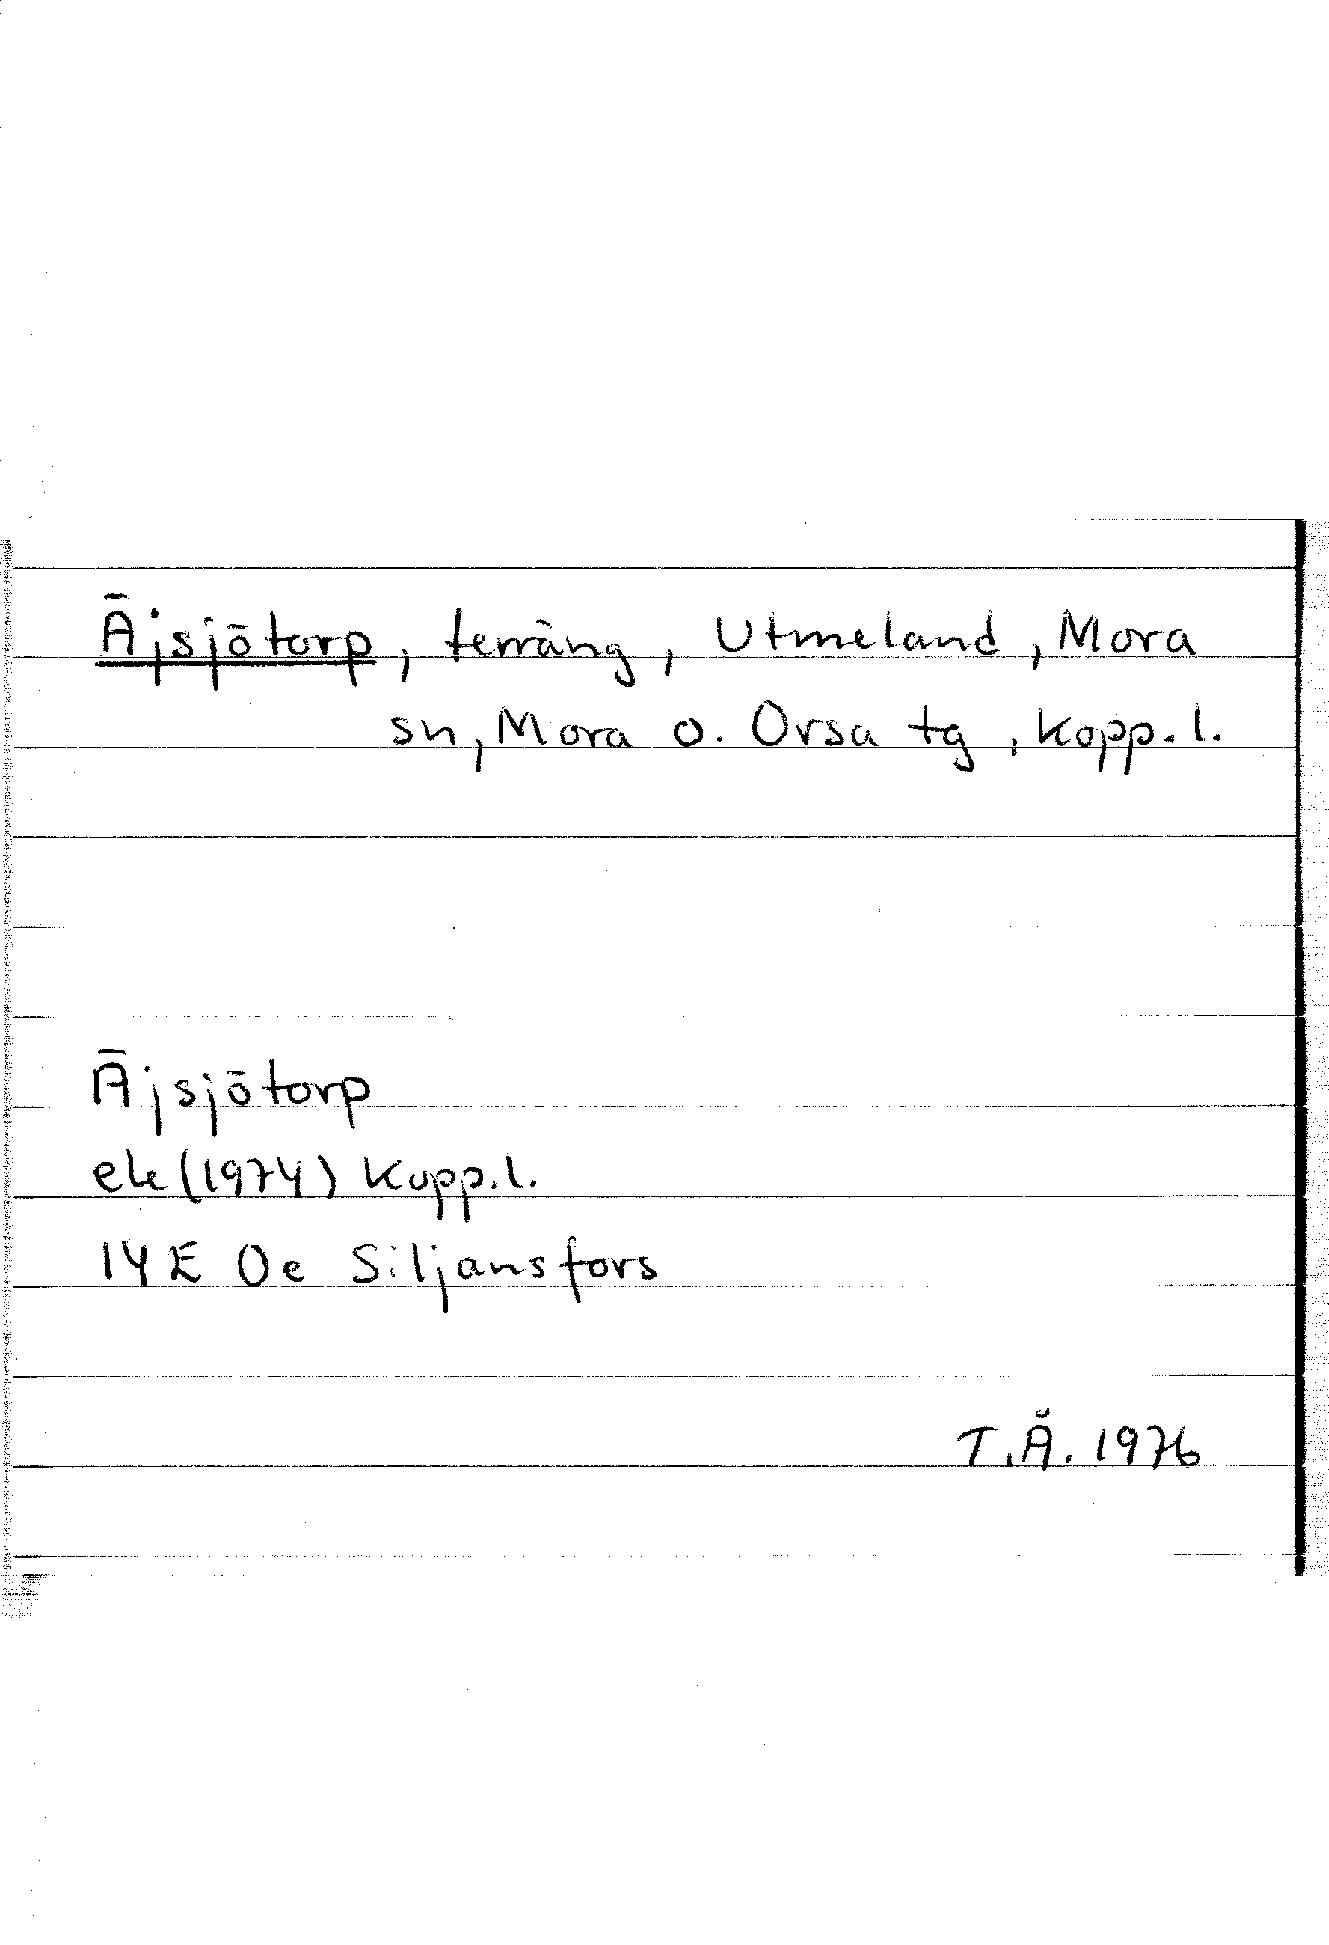 Äjsjötorp, terräng, Utmeland, Mora
sn, Mora o. Orsa tg, Kopp. l.
Äjsjötorp
ek (1974) Kopp. l.
14E 0e Siljansfors
T.Å. 1976